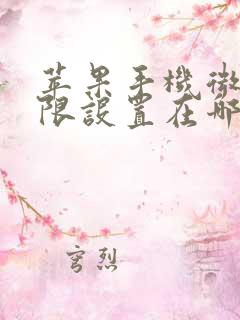 苹果手機微
限設置在哪
穹烈